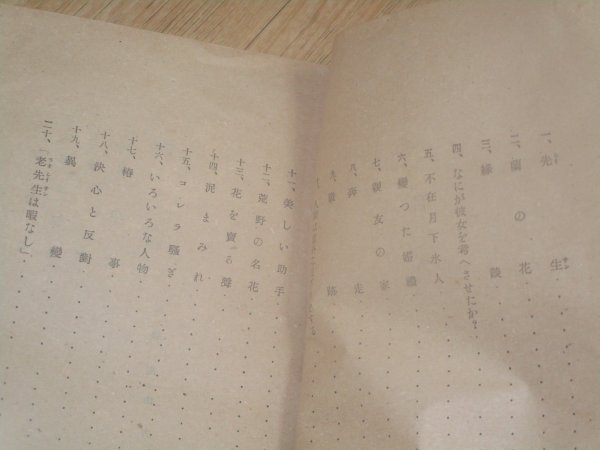 一、先生
二、蘭の花
三、縁談
四、なにが彼女を考へさせたか？
五、不在月下氷人
六、變つた婚禮
七、親友の家
八、奔走
九、跡
十、
十一、美しい助手
十二、荒野の名花
十三、花を賣る聲
十四、泥まみれ
十五、コレラ騒ぎ
十六、いろいろな人物
十七、椿事
十八、決心と反對
十九、異變
二十、「老先生は暇なし」